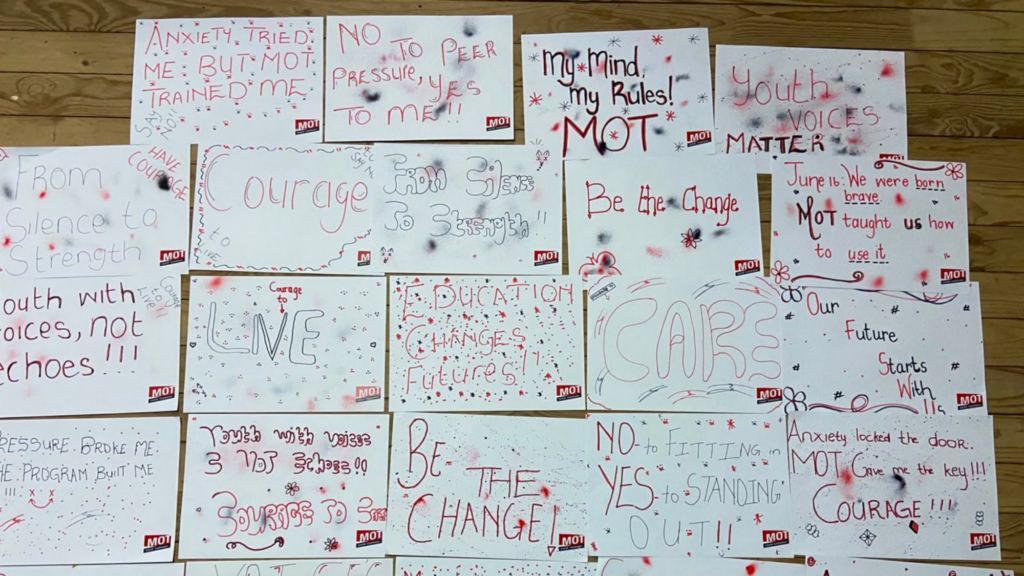 ANXIETY TRIED
ME BUT MOT
TRAINED ME
MOT
NO TO PEER
PRESSURE, YES
TO ME!!
MOT
My Mind,
my Rules!
MOT
MOT
Youth
VOICES
MATTER
HAVE
COURAGE
FROM
Silence to
Strength
MOT
Courage
to
From Silence
To Strength!!
MOT
Be the Change
MOT
June 16: We were born
brave.
MOT taught us how
to use it
MOT
outh with
oices, not
echoes!!!
MOT
Courage
to
LIVE
MOT
EDUCATION
CHANGES
Futures!!
MOT
CARE
MOT
Our
Future
Starts
With
MOT
RESSURE BROKE ME.
HE PROGRAM BUILT ME
!!!
MOT
Youth with voices
& NOT Echoes!!
COURAGE TO
MOT
BE
THE
CHANGE!
MOT
NO to FITTING in
YES to STANDING
OUT!!
MOT
Anxiety locked the door.
MOT Give me the key!!!
COURAGE!!!
MOT